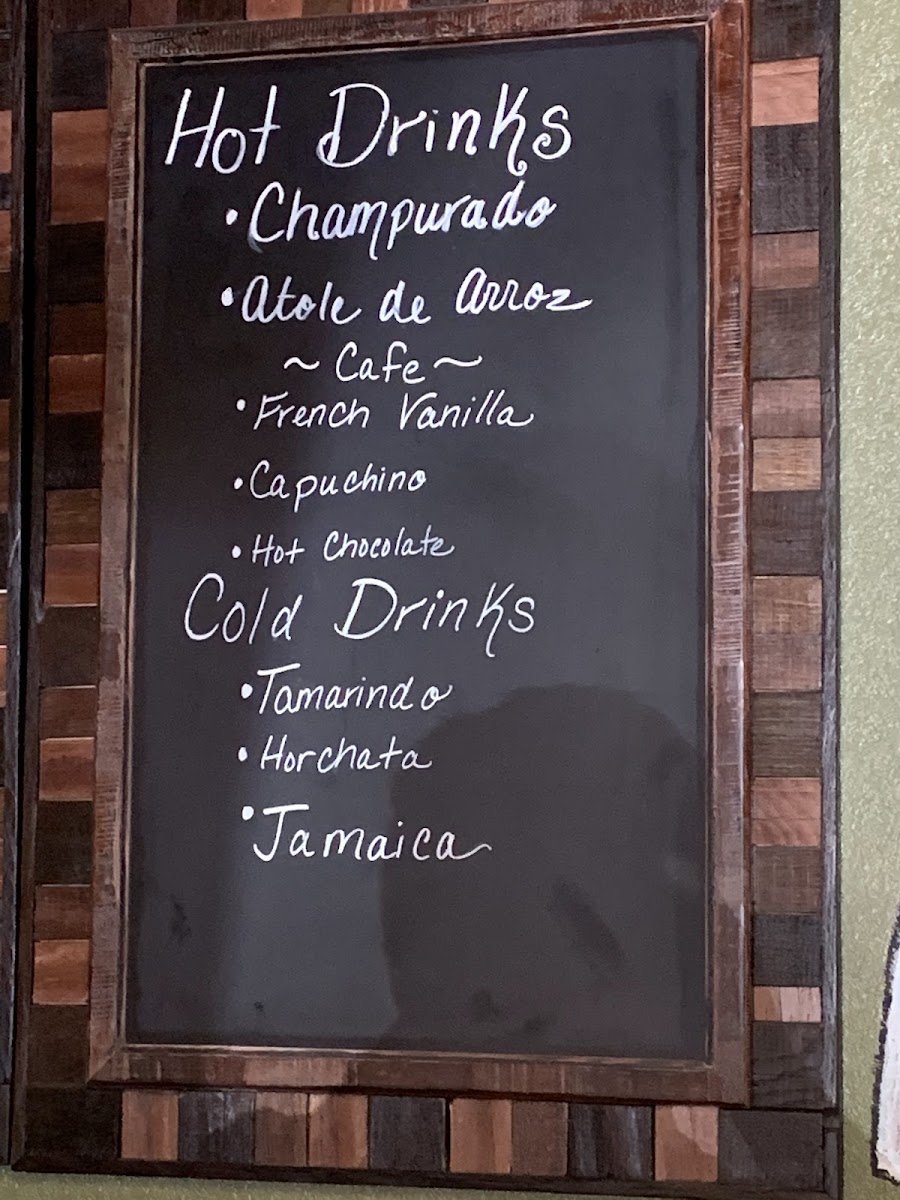 Hot Drinks
• Champurado
• Atole de Arroz
~ Cafe ~
• French Vanilla
• Capuchino
• Hot Chocolate
Cold Drinks
• Tamarindo
• Horchata
• Jamaica